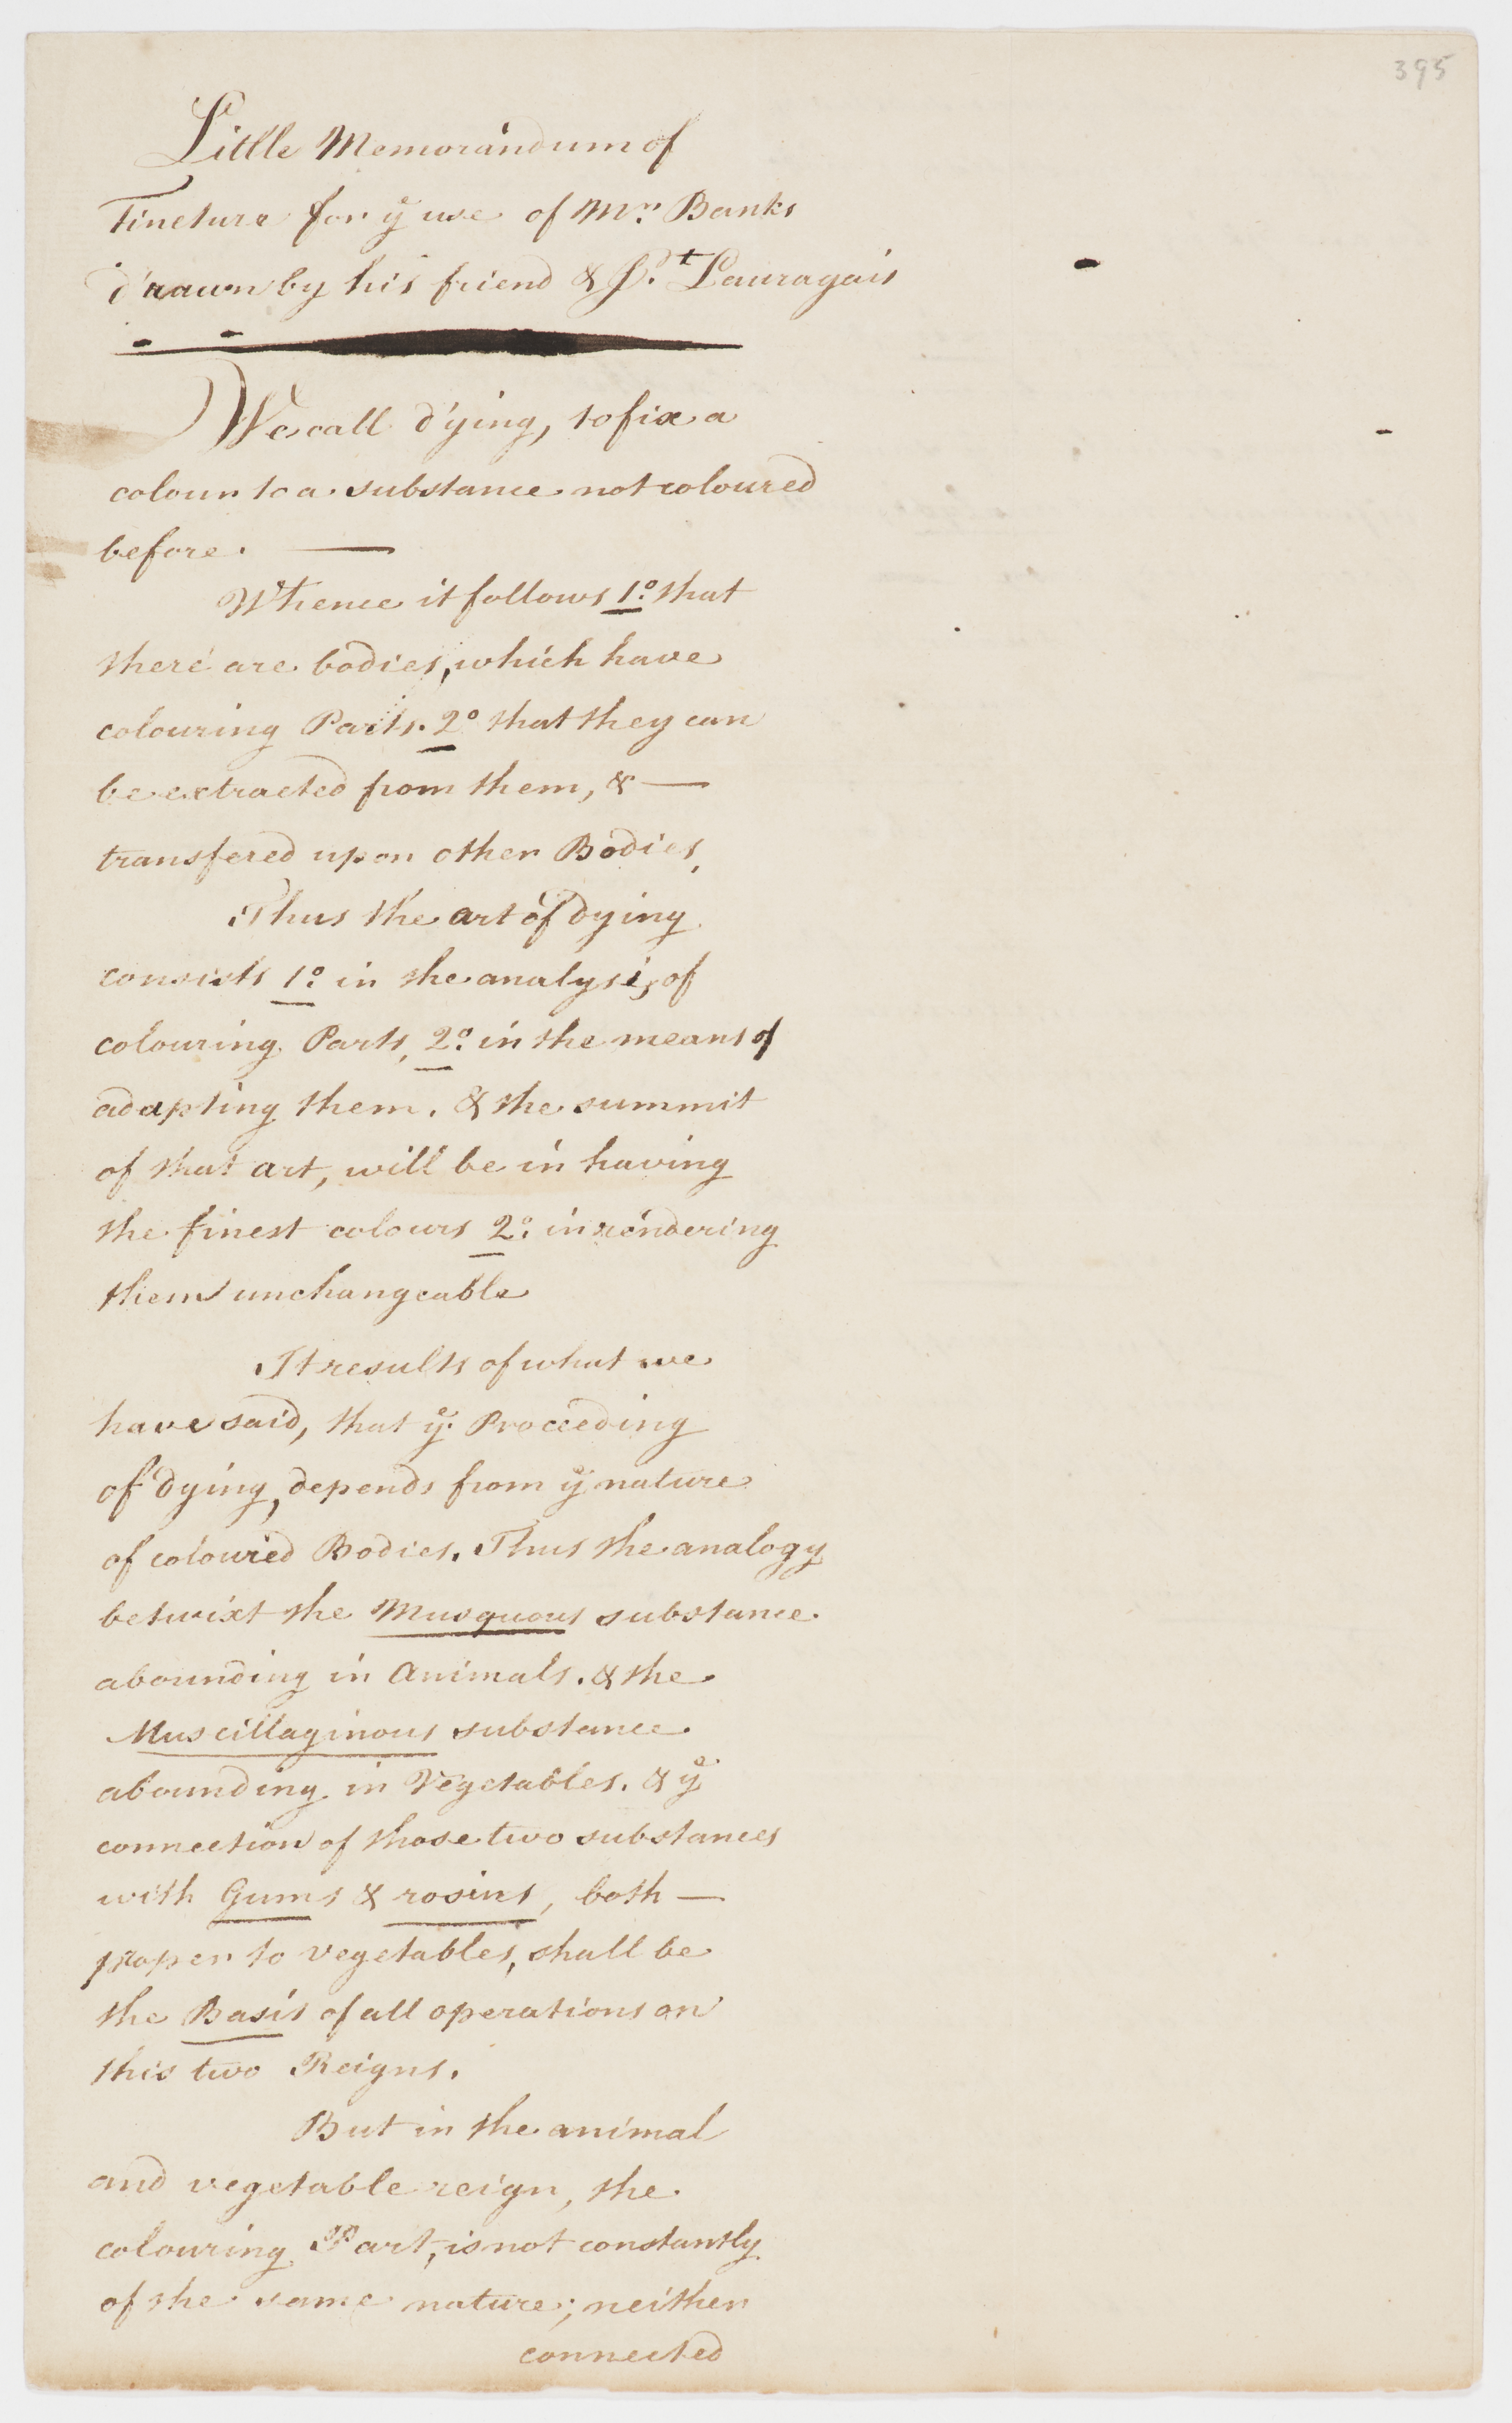 395
Little Memorandum of
Tincture for ye use of Mr. Banks
drawn by his friend & St. Lauragais
We call dying, to fix a
colour to a substance not coloured
before. —
Whence it follows 1o. that
there are bodies, which have
colouring Parts. 2o that they can
be extracted from them, & —
transfered upon other Bodies,
Thus the art of dying
consists 1o. in the analysis of
colouring Parts, 2o. in the means of
adapting them. & the summit
of that art, will be in having
the finest colours 2o. in rendering
them unchangeable
It results of what we
have said, that ye. Proceeding
of dying, depends from ye nature
of coloured Bodies. Thus the analogy
betwixt the Musquous substance.
abounding in Animals. & the
Muscillaginous substance.
abounding in Vegetables. & ye
connection of those two substances
with Gums & rosins, both —
proper to vegetables, shall be
the Basis of all operations on
this two Reigns.
But in the animal
and vegetable reign, the
colouring Part, is not constantly
of the same nature; neither
connected